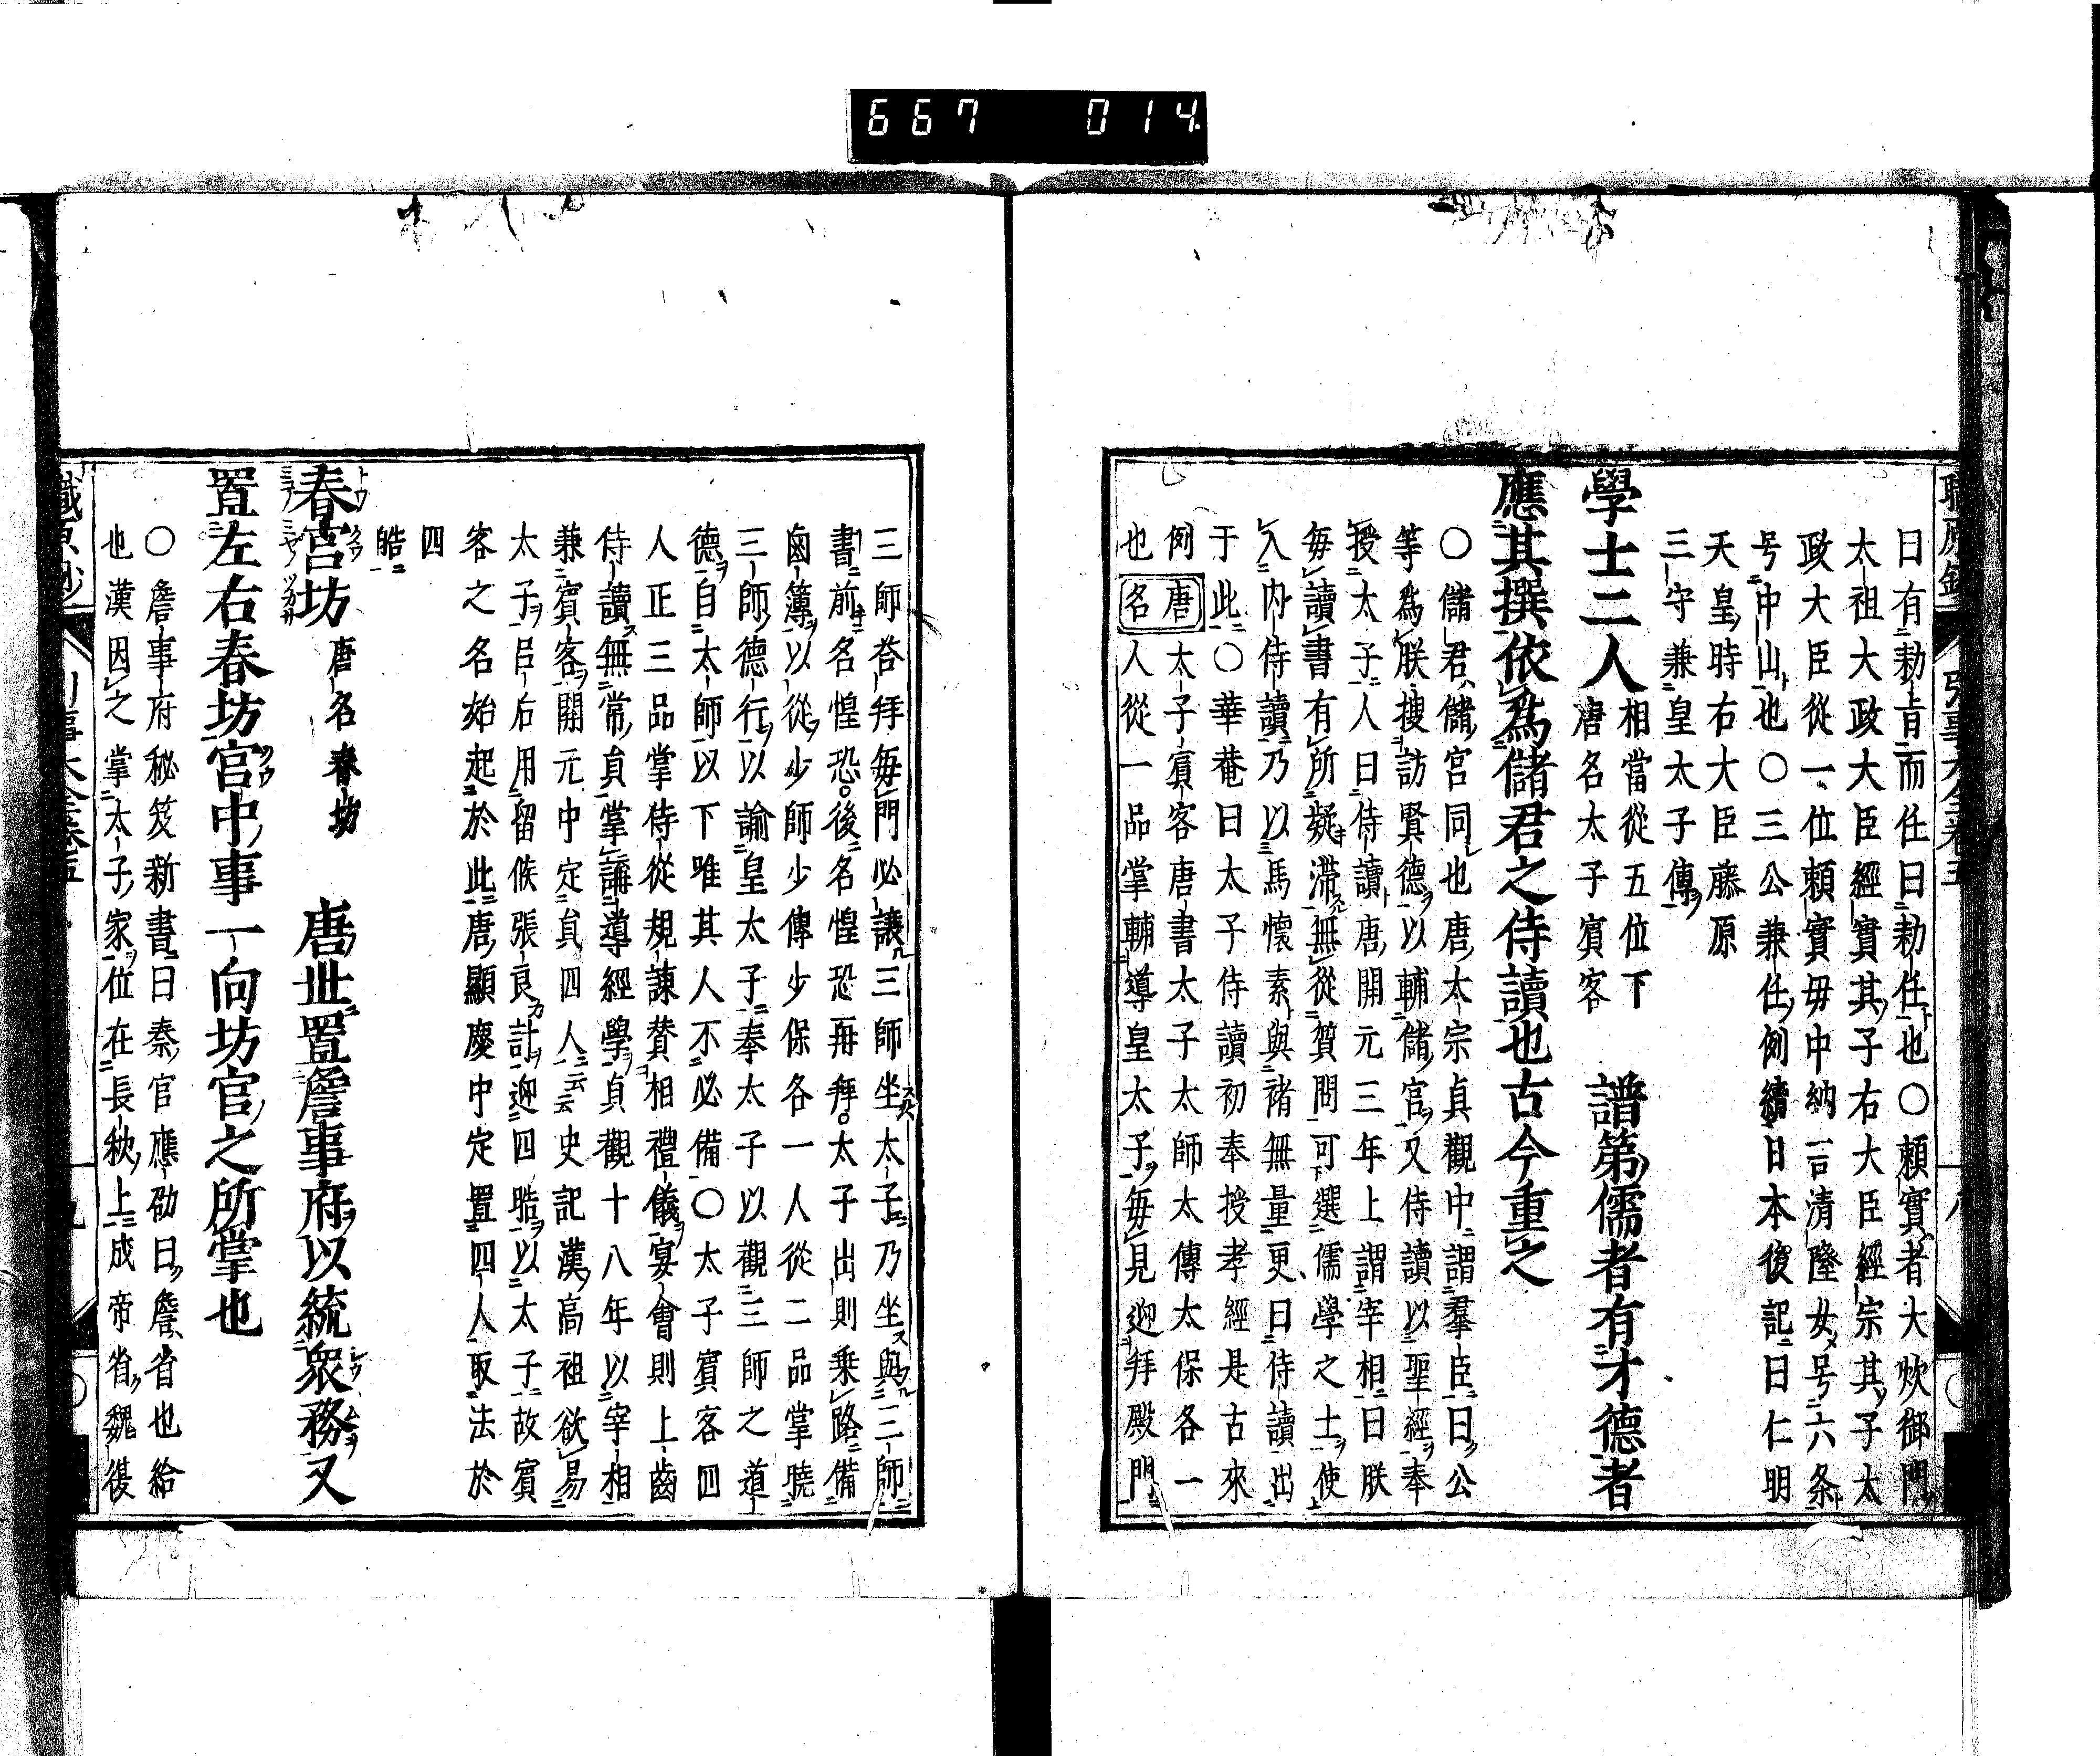 667 014
日有勅旨而任曰勅任也〇頼實者大炊御門
太祖大政大臣經實其子右大臣經宗其子太
政大臣從一位頼實毋中納言清隆女号六条
号中山也〇三公兼任例續日本後記曰仁明
天皇時右大臣藤原
三守兼皇太子傳
學士二人 相當從五位下 唐名太子賓客 譜第儒者有才德者
應其撰依爲儲君之侍讀也古今重之
〇儲君儲宮同也唐太宗貞觀中謂羣臣曰公
等爲朕搜訪賢德以輔儲宮又侍讀以聖經奉
授太子人曰侍讀唐開元三年上謂宰相曰朕
毎讀書有所疑滞無從質問可選儒學之士使
入内侍讀乃以馬懷素與褚無量更曰侍讀出
于此〇華菴曰太子侍讀初奉授孝經是古來
例唐太子賓客唐書太子太師太傳太保各一
也名人從一品掌輔導皇太子毎見迎拜殿門
三師答拜毎門必讓三師坐太子乃坐與三師
書前名惶恐後名惶恐再拜太子出則乗路備
鹵簿以從少師少傳少保各一人從二品掌曉
三師德行以諭皇太子奉太子以觀三師之道
德自太師以下唯其人不必備〇太子賓客四
人正三品掌侍從規諫賛相禮儀宴會則上齒
侍讀無常負掌講導經學貞觀十八年以宰相
兼賓客開元中定負四人云云史記漢高祖欲易
太子吕后用留侯張良計迎四晧以太子故賓
客之名始起於此唐顯慶中定置四人取法於
四
晧
春宮坊 唐名春坊 唐世置詹事府以統衆務又
置左右春坊官中事一向坊官之所掌也
〇詹事府秘笈新書曰秦官應劭曰詹省也給
也漢因之掌太子家位在長秋上成帝省魏復